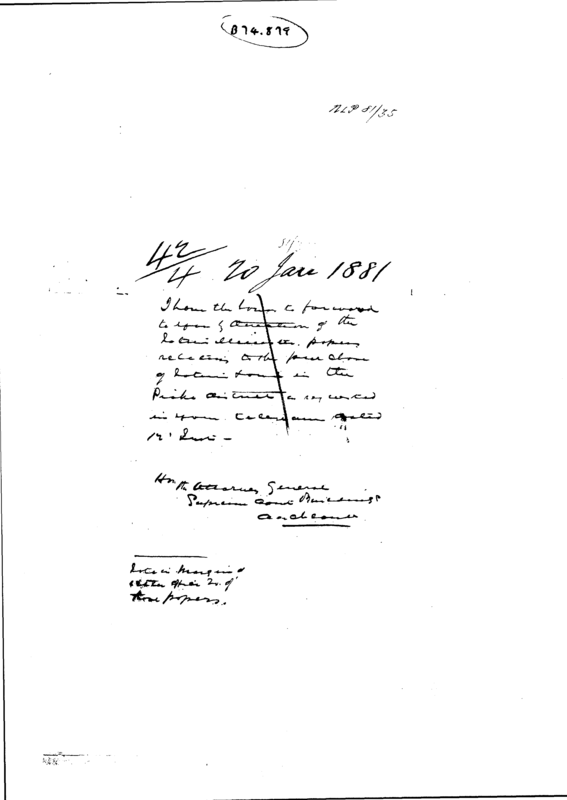 B74.879
NLP 81/35
42/4 20 Jan 1881
I have the honor to forward
to you by direction of the
Native Minister papers
relating to the purchase
of Native Land in the
Piako district as requested
in your telegram dated
12' Inst -
Hon the Attorney General
Supreme Court Buildings
Auckland
Note in Margin of
other No. of
these papers.